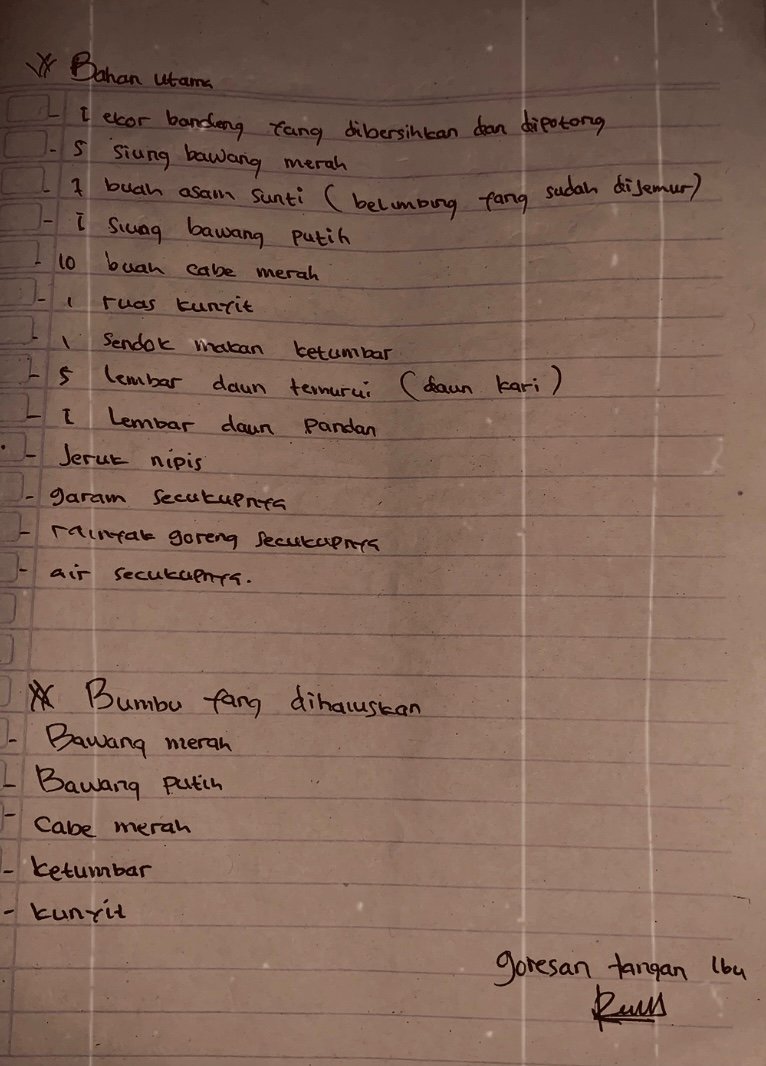 Bahan utama
- 1 ekor bandeng yang dibersihkan dan dipotong
- 5 siung bawang merah
- 7 buah asam sunti (belimbing yang sudah dijemur)
- 1 siung bawang putih
- 10 buah cabe merah
- 1 ruas kunyit
- 1 sendok makan ketumbar
- 5 lembar daun temurui (daun kari)
- 1 lembar daun pandan
- Jeruk nipis
- garam secukupnya
- goreng secukupnya
- air secukupnya.
Bumbu yang dihaluskan
- Bawang merah
- Bawang putih
- Cabe merah
- ketumbar
- kunyit
goresan tangan Ibu